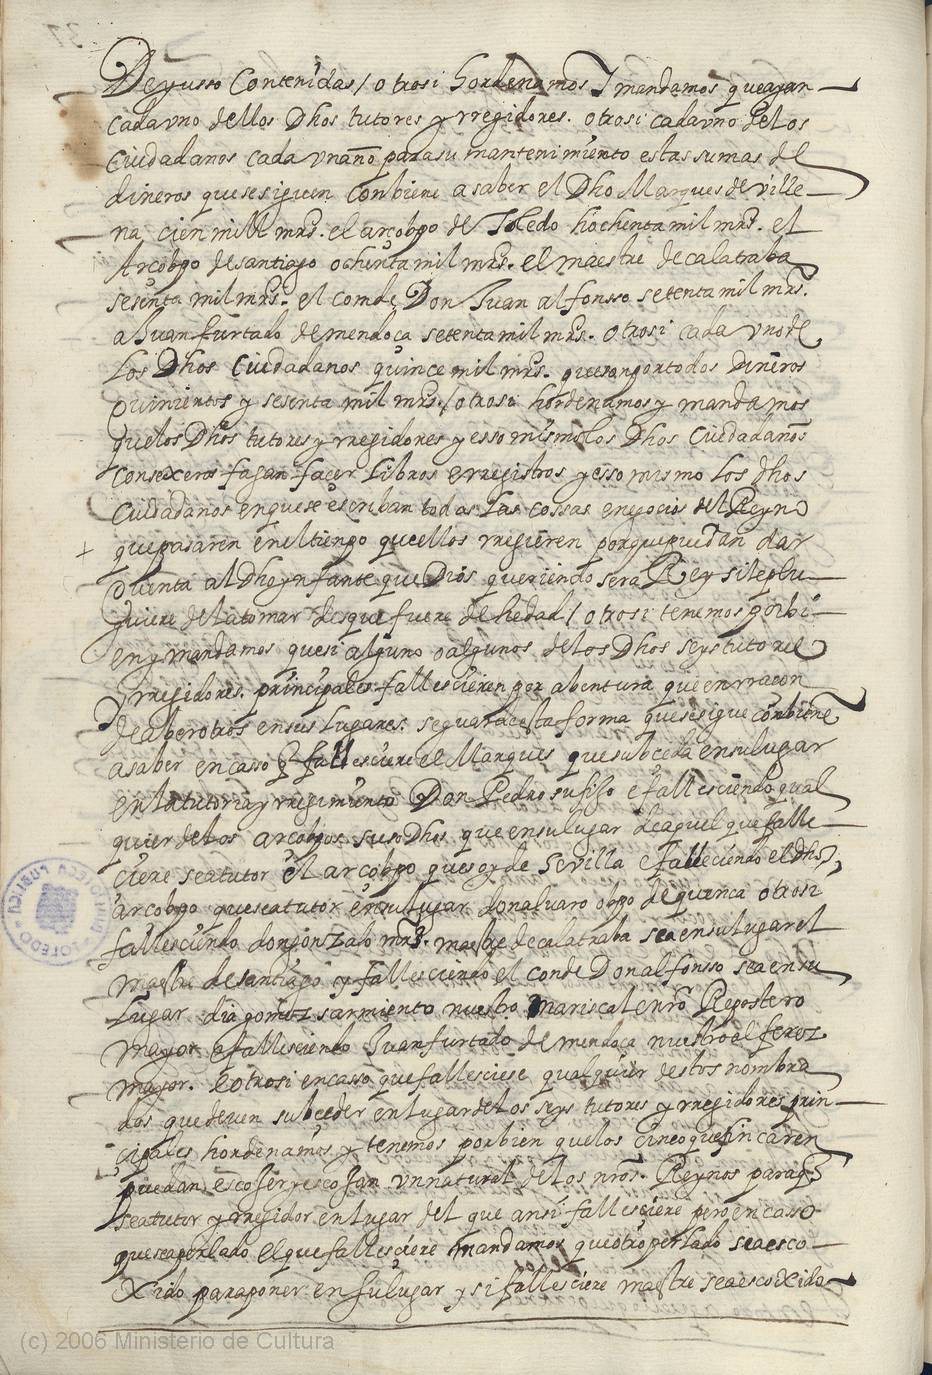 De yusso Contenidas / otrosi hordenamos y mandamos que ayan
cada vno dellos Dhos tutores y rregidores. otrosi cada vno delos
Ciudadanos cada vn año para su mantenimiento estas sumas de
dineros que se siguen Conbiene a saber el Dho Marques de ville
na cien mill mrs. el arçobpo de Toledo hochenta mil mrs. el
Arcobpo de santiago ochenta mil mrs. el maestre de calatraba
sesenta mil mrs. el conde Don Juan alfonsso setenta mil mrs.
a Juan furtado de mendoça setenta mil mrs. otrosi cada vno de
Los Dhos Ciudadanos quince mil mrs. que son por todos Dineros
Quinientos y sesenta mil mrs. / otrosi hordenamos y mandamos
que los Dhos tutores y rregidores y esso mismo los Dhos Ciudadanos
Consexeros fagan facer Libros e rregistros y esso mismo los dhos
Ciudadanos en que se escriban todas Las cossas e negocios del Reyno
que pasaren en el tienpo que ellos rregieren porque puedan dar
Quenta al Dho ynfante que Dios queriendo sera Rey si le plu
guiere dela tomar desque fuere de hedad / otrosi tenemos por bi
en y mandamos que si alguno o algunos delos Dhos seys tutores
y rregidores. principales fallescieren por abentura que en rracon
de aber otros en sus Lugares. se guarde esta forma que se sigue conbiene
a saber en casso q fallesciere el Marques que subceda en su lugar
en la tutoria y rregimiento Don Pedro su fijo e fallesciendo qual
quier delos arcobpos suso Dhos que en su lugar de aquel que falle
ciere sea tutor el arcobpo que es oy de Sevilla e falleciendo el dho
arcobpo que sea tutor en su lugar don alvaro obpo de quenca otrosi
fallesciendo don gonzalo mrz. maestre de calatraba sea en su lugar el
maestre de santiago y fallesciendo el conde Don alfonsso sea en su
Lugar dia gomez sarmiento nuestro mariscal e nro Repostero
mayor e fallesciendo Juan furtado de mendoça nuestro alferez
mayor. e otrosi en casso que fallesciese qualquier destos nombra
dos que deven subceder en lugar delos seys tutores y rregidores prin
cipales hordenamos y tenemos por bien que los cinco que fincaren
puedan escojer y escojan vn natural delos nros. Reynos para q
sea tutor y rregidor en lugar del que ansi fallesciere pero en casso
que sea perlado el que fallesciere mandamos que otro perlado sea esco
Xido para poner en su lugar y si fallesciere maestre sea escoxido
(c) 2006 Ministerio de Cultura